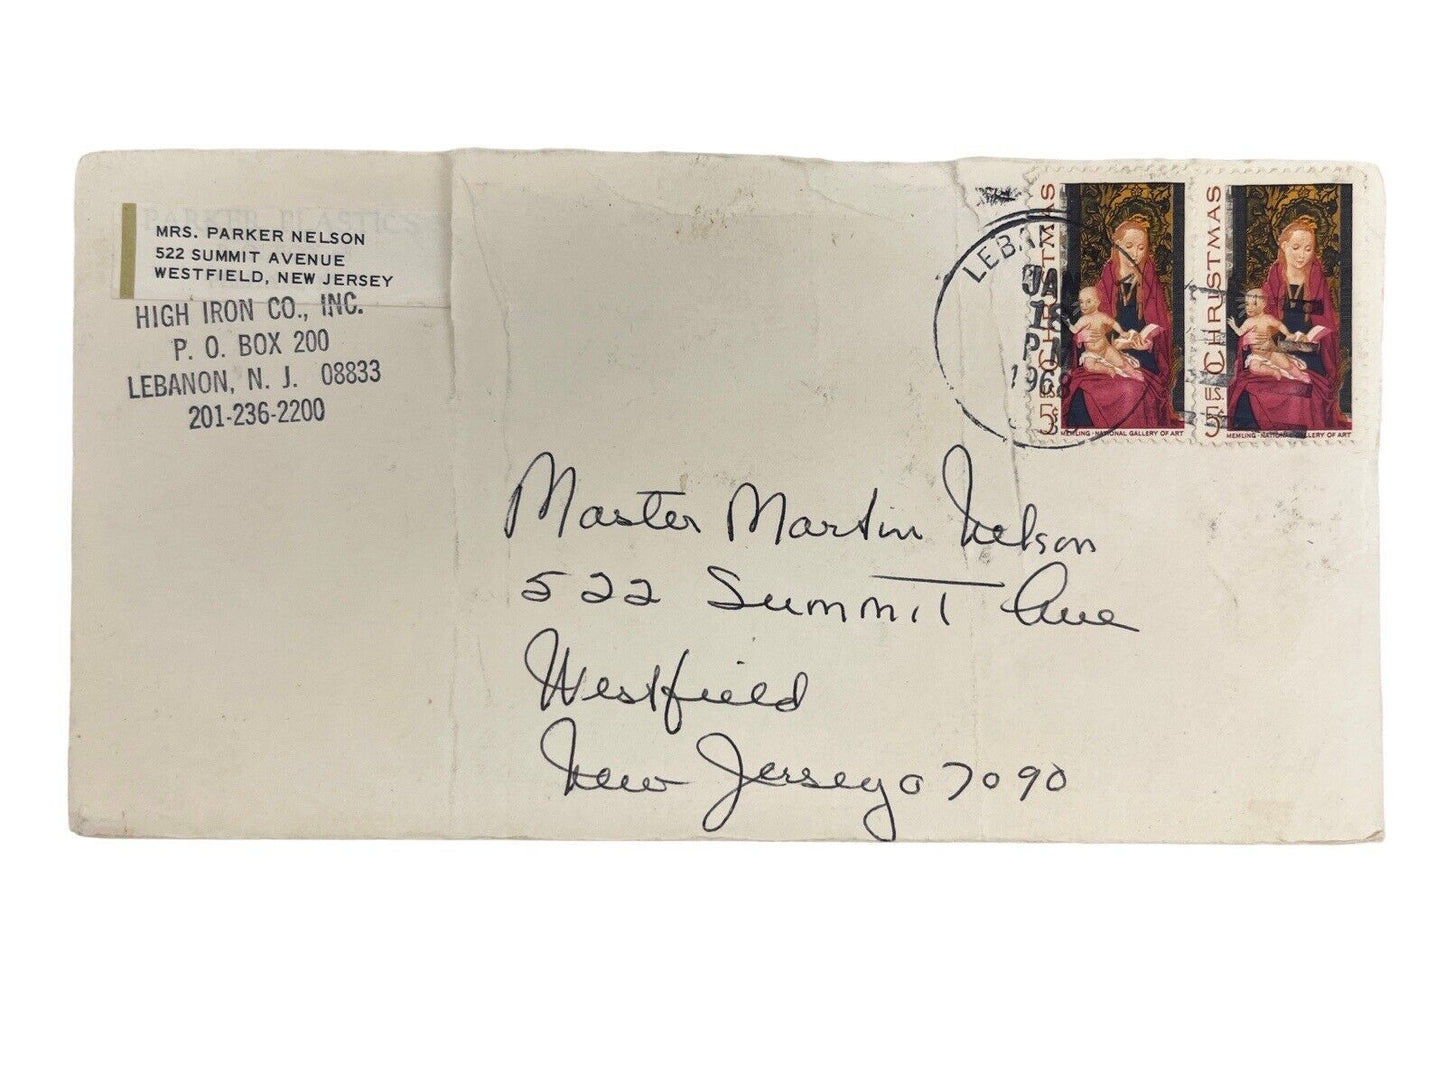 PARKER PLASTICS
MRS. PARKER NELSON
522 SUMMIT AVENUE
WESTFIELD, NEW JERSEY
HIGH IRON CO., INC.
P. O. BOX 200
LEBANON, N. J. 08833
201-236-2200
LEBAN
JAN
18
PM
1968
CHRISTMAS
U.S. 5¢
MEMLING · NATIONAL GALLERY OF ART
CHRISTMAS
U.S. 5¢
MEMLING · NATIONAL GALLERY OF ART
Master Martin Nelson
522 Summit Ave
Westfield
New Jersey 07090